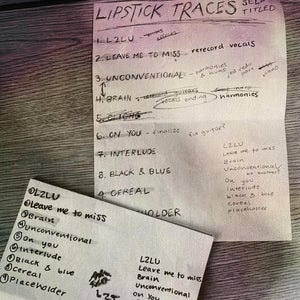 LIPSTICK TRACES SELF
TITLED
1. LZLU -
2. LEAVE ME TO MISS - rerecord vocals
3. UNCONVENTIONAL - harmonies
4. BRAIN
vocals ending harmonies
5. CLICHE
6. ON YOU - finalize fix guitar?
7. INTERLUDE
8. BLACK & BLUE
9. CEREAL
HOLDER
LZLU
Leave me to miss
Brain
Unconventional
On you
Interlude
Black & blue
Cereal
Placeholder
① LZLU
② Leave me to miss
③ Brain
④ unconventional
⑤ On you
⑥ Interlude
⑦ Black & blue
⑧ Cereal
⑨ Placeholder
LZLU
Leave me to miss
Brain
unconventional
On You
LZT